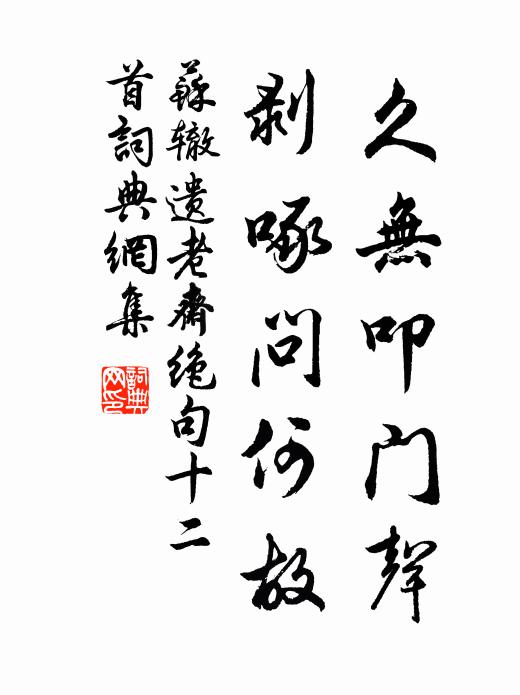 久無叩门聲
剥啄問何故
蘇辙遗老齋绝句十二
首詞典網集
詞典
网印